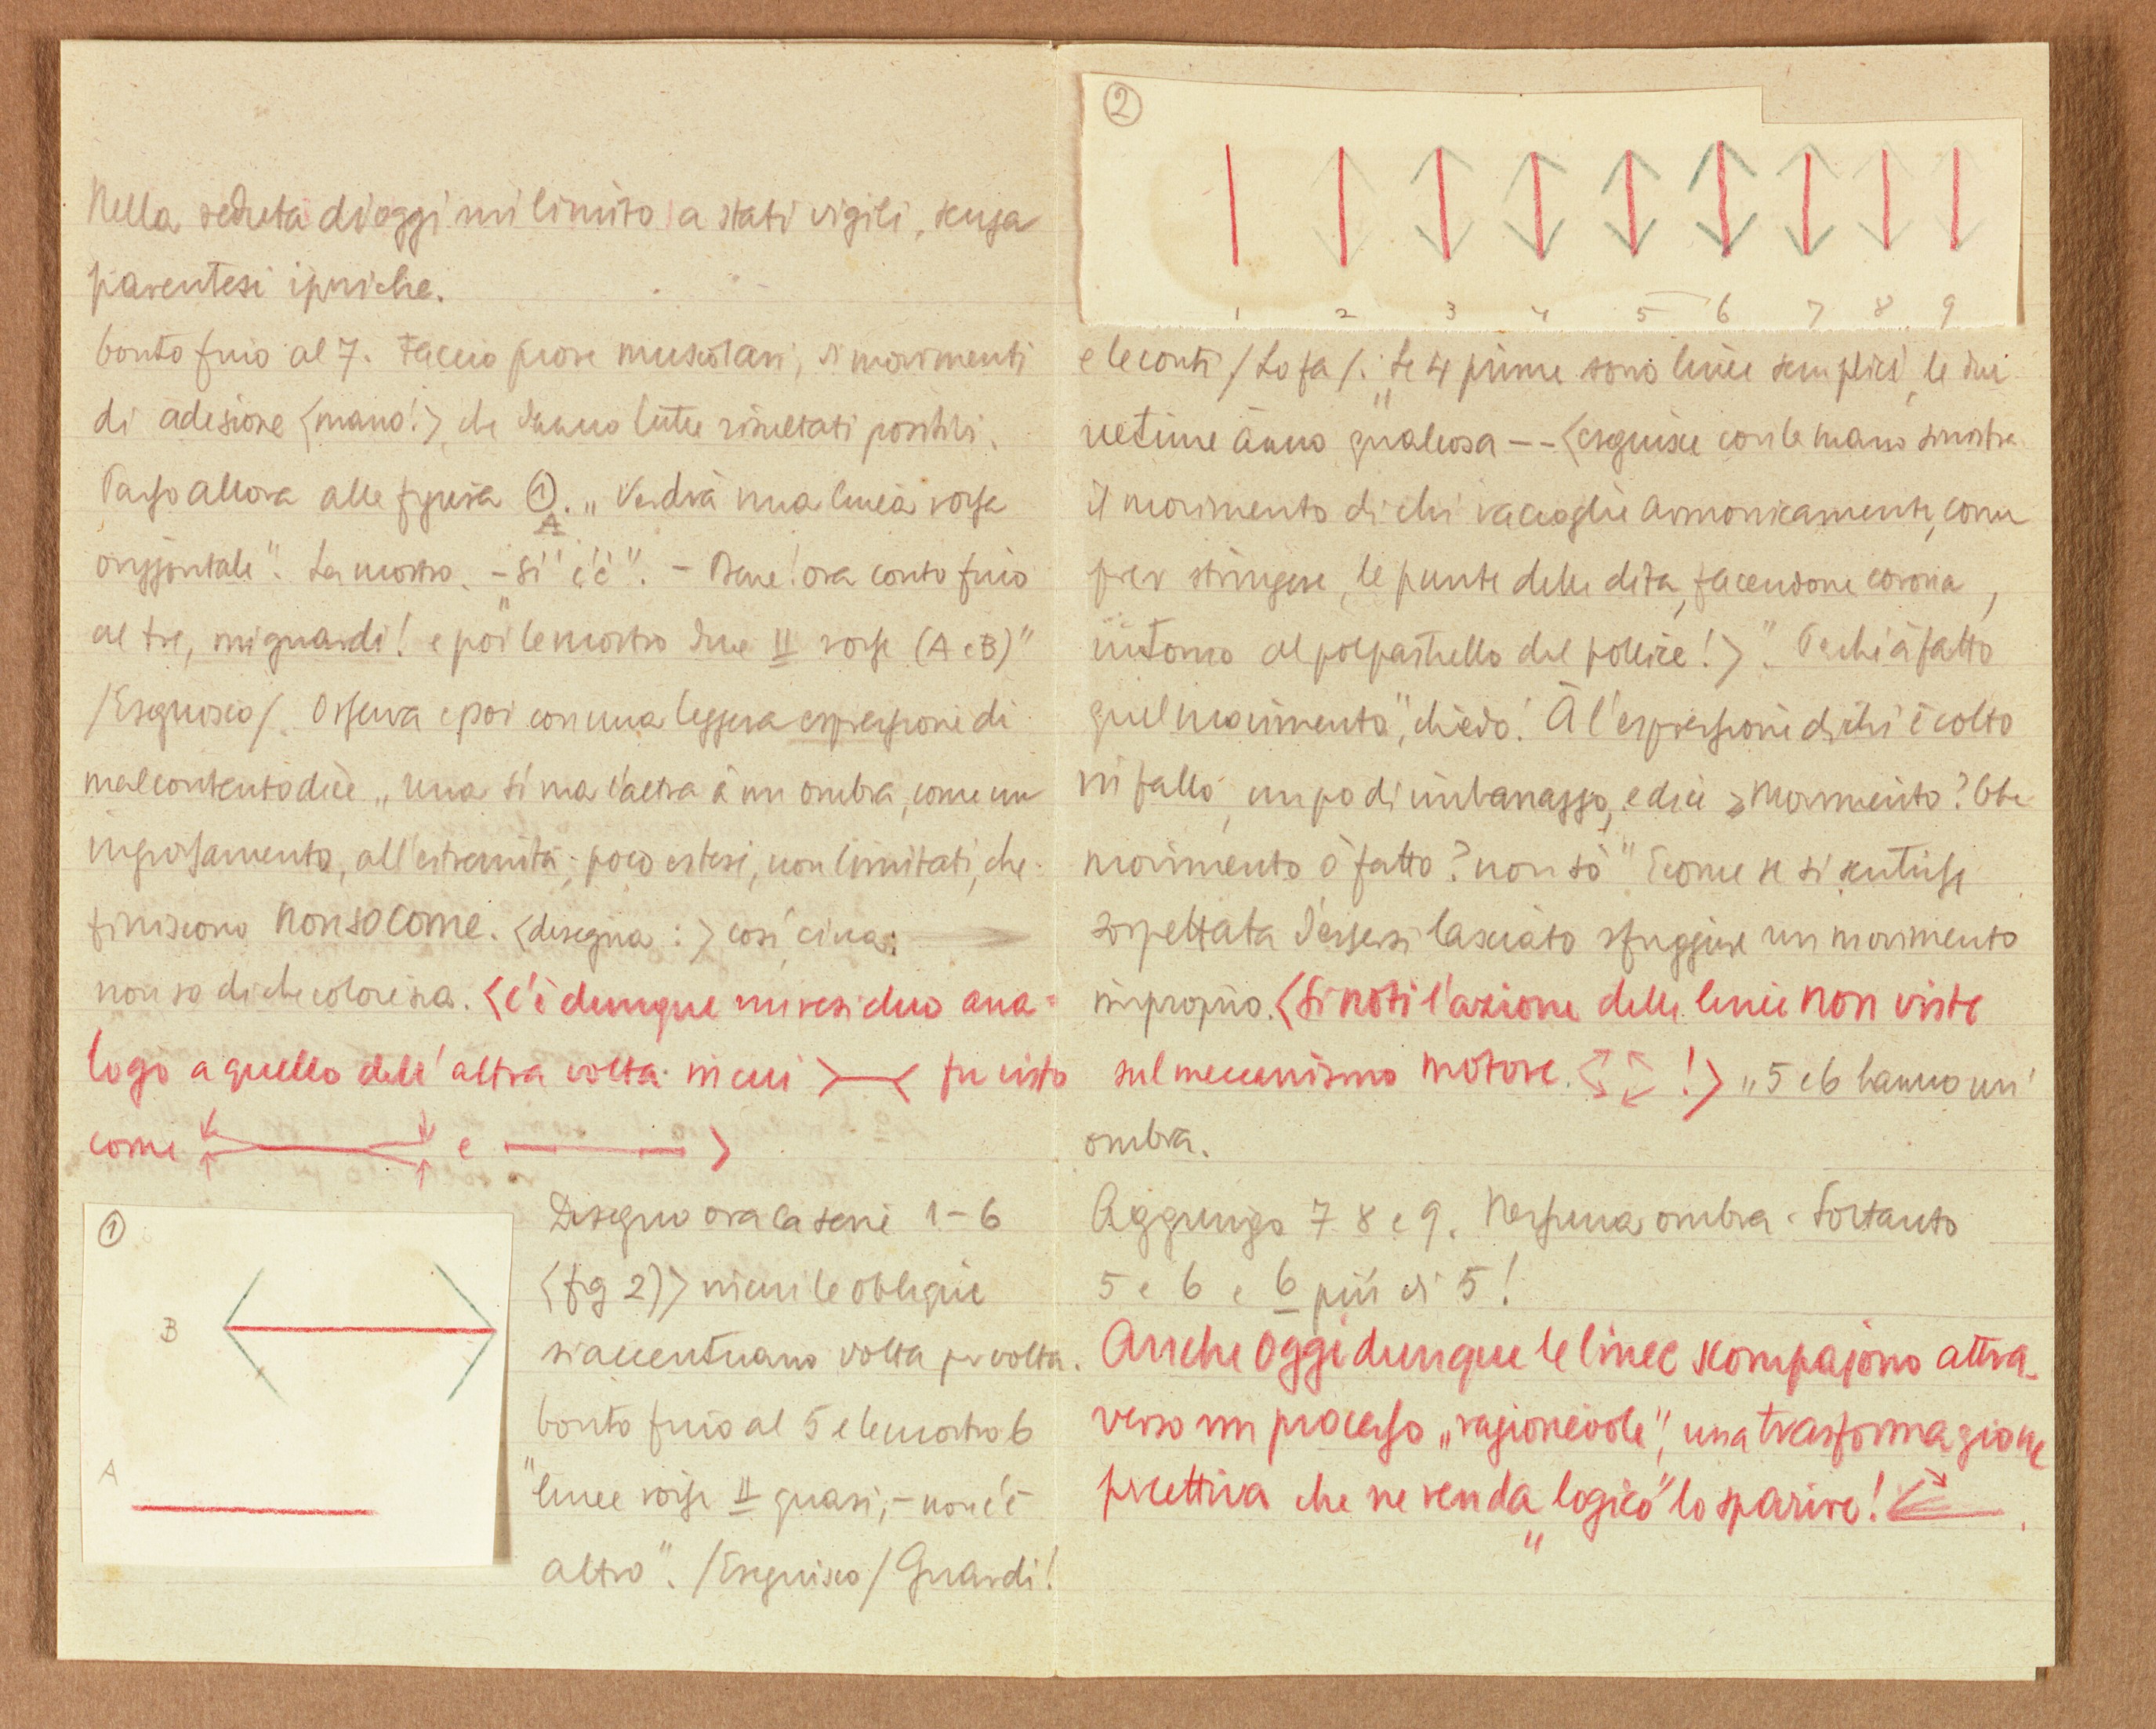 Nella seduta di oggi mi limito a stati vigili, senza
parentesi ipniche.
Conto fino al 7. Faccio prove muscolari, di movimenti
di adesione <mano!> che danno tutte risultati positivi.
Passo allora alla figura ①. „Vedrà una linea rossa
A
orizzontale". La mostro. - „Si c'è". - Bene! ora conto fino
al tre, mi guardi! e poi le mostro due II rosse (A e B)"
/Eseguisco/. Osserva e poi con una leggera espressione di
malcontento dice „una si ma l'altra à un ombra, come un
ingrossamento, all'estremità; poco estesi, non limitati, che
finiscono non so come. <disegna:> così, circa:
non so di che colore sia. <c'è dunque un residuo ana=
logo a quello dell'altra volta in cui >—< fu visto
come e >
①
B
A
Disegno ora la serie 1-6
<fig 2)> in cui le oblique
si accentuano volta per volta.
Conto fino al 5 e le mostro 6
"linee rosse II quasi, - non c'è
altro". /Eseguisco/ Guardi!
②
1 2 3 4 5 6 7 8 9
e le conti /Lo fa/. „Le 4 prime sono linee semplici, le due
ultime ànno qualcosa -- <eseguisce con la mano sinistra
il movimento di chi raccoglie armonicamente, come
per stringere, le punte delle dita, facendone corona,
intorno al polpastrello del pollice!>". Perchi à fatto
quel movimento", chiedo! À l'espressione di chi è colto
in fallo, un po di imbarazzo, e dice „Movimento? Che
movimento ò fatto? non so" E come se si sentisse
sospettata d'essersi lasciato sfuggire un movimento
improprio. <Si noti l'azione delle linee non viste
sul meccanismo motore. !> „5 e 6 hanno un'
ombra.
Aggiungo 7 8 e 9. Nessuna ombra. Soltanto
5 e 6 e 6 più di 5!
Anche oggi dunque le linee scompajono attra-
verso un processo „ragionevole", una trasformazione
percettiva che ne renda „logico" lo sparire!